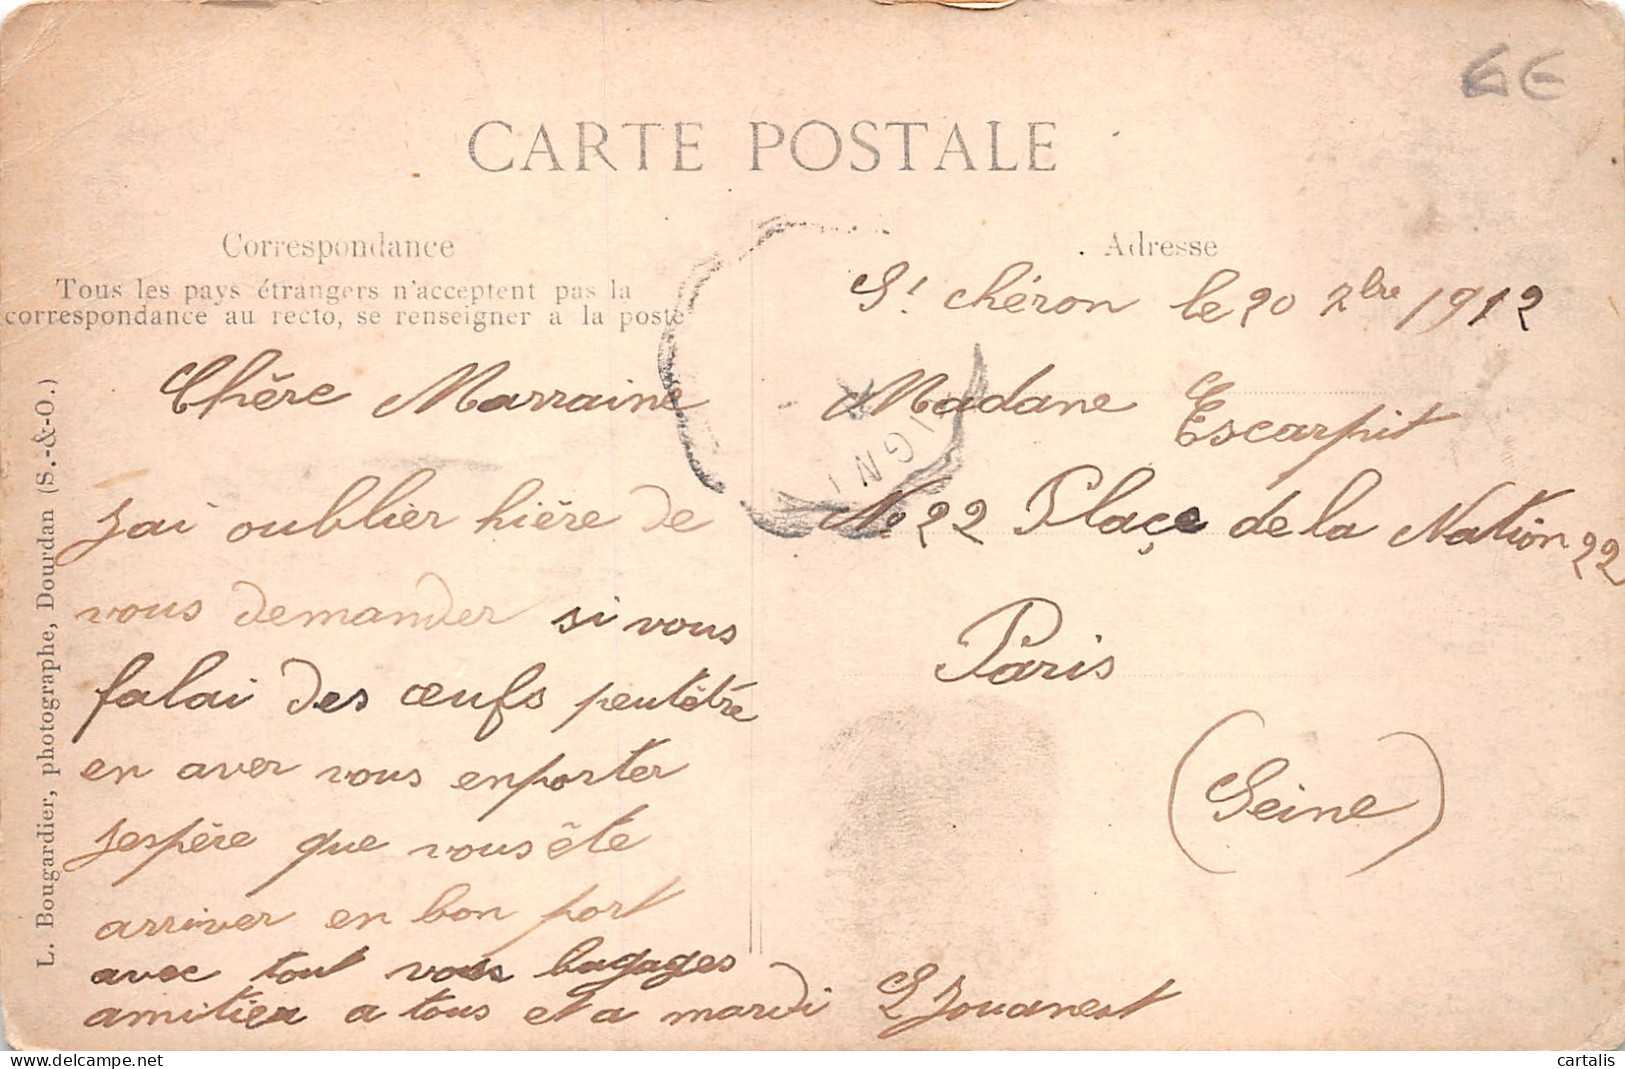 6€
CARTE POSTALE
Correspondance
Tous les pays étrangers n'acceptent pas la
correspondance au recto, se renseigner a la poste
Chère Marraine
J'ai oublier hière de
vous demander si vous
falai des œufs peutêtre
en aver vous enporter
jespère que vous ête
arriver en bon port
avec tout vous bagages
amitier a tous et a mardi L Jouanest
Adresse
St chéron le 20 xbre 1912
Madane Escarpit
No 22 Plaçe de la Nation 22
Paris
(Seine)
IGNY
L. Bougardier, photographe, Dourdan (S.-&-O.)
cartalis